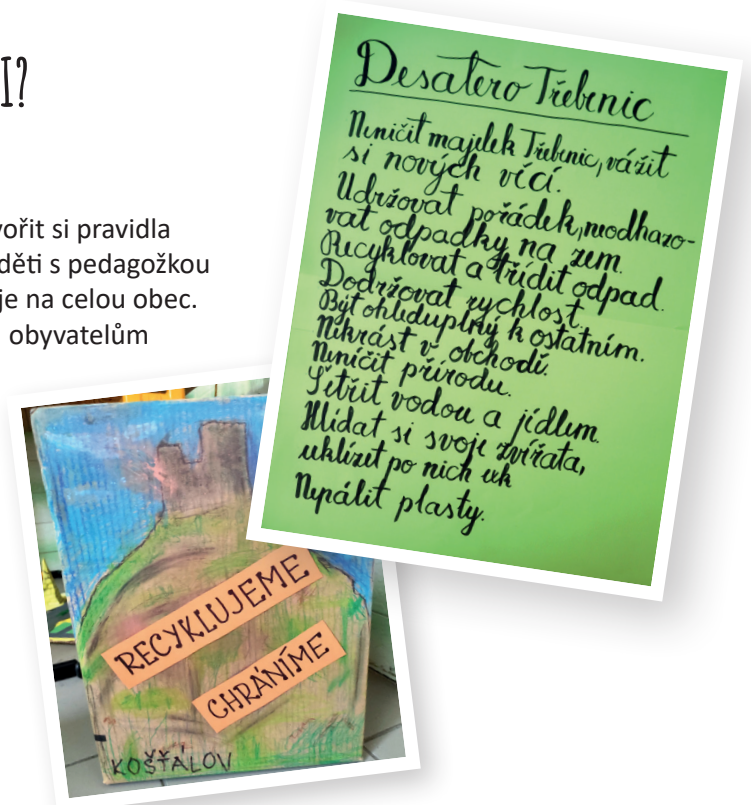 I?
vořit si pravidla
děti s pedagožkou
je na celou obec.
obyvatelům
Desatero Třebenic
Neničit majetek Třebenic, vážit
si nových věcí.
Udržovat pořádek, neodhazo-
vat odpadky na zem.
Recyklovat a třídit odpad.
Dodržovat rychlost.
Být ohleduplný k ostatním.
Nekrást v obchodě.
Neničit přírodu.
Šetřit vodou a jídlem.
Hlídat si svoje zvířata,
uklízet po nich
Nepálit plasty.
RECYKLUJEME
CHRÁNÍME
KOŠŤÁLOV